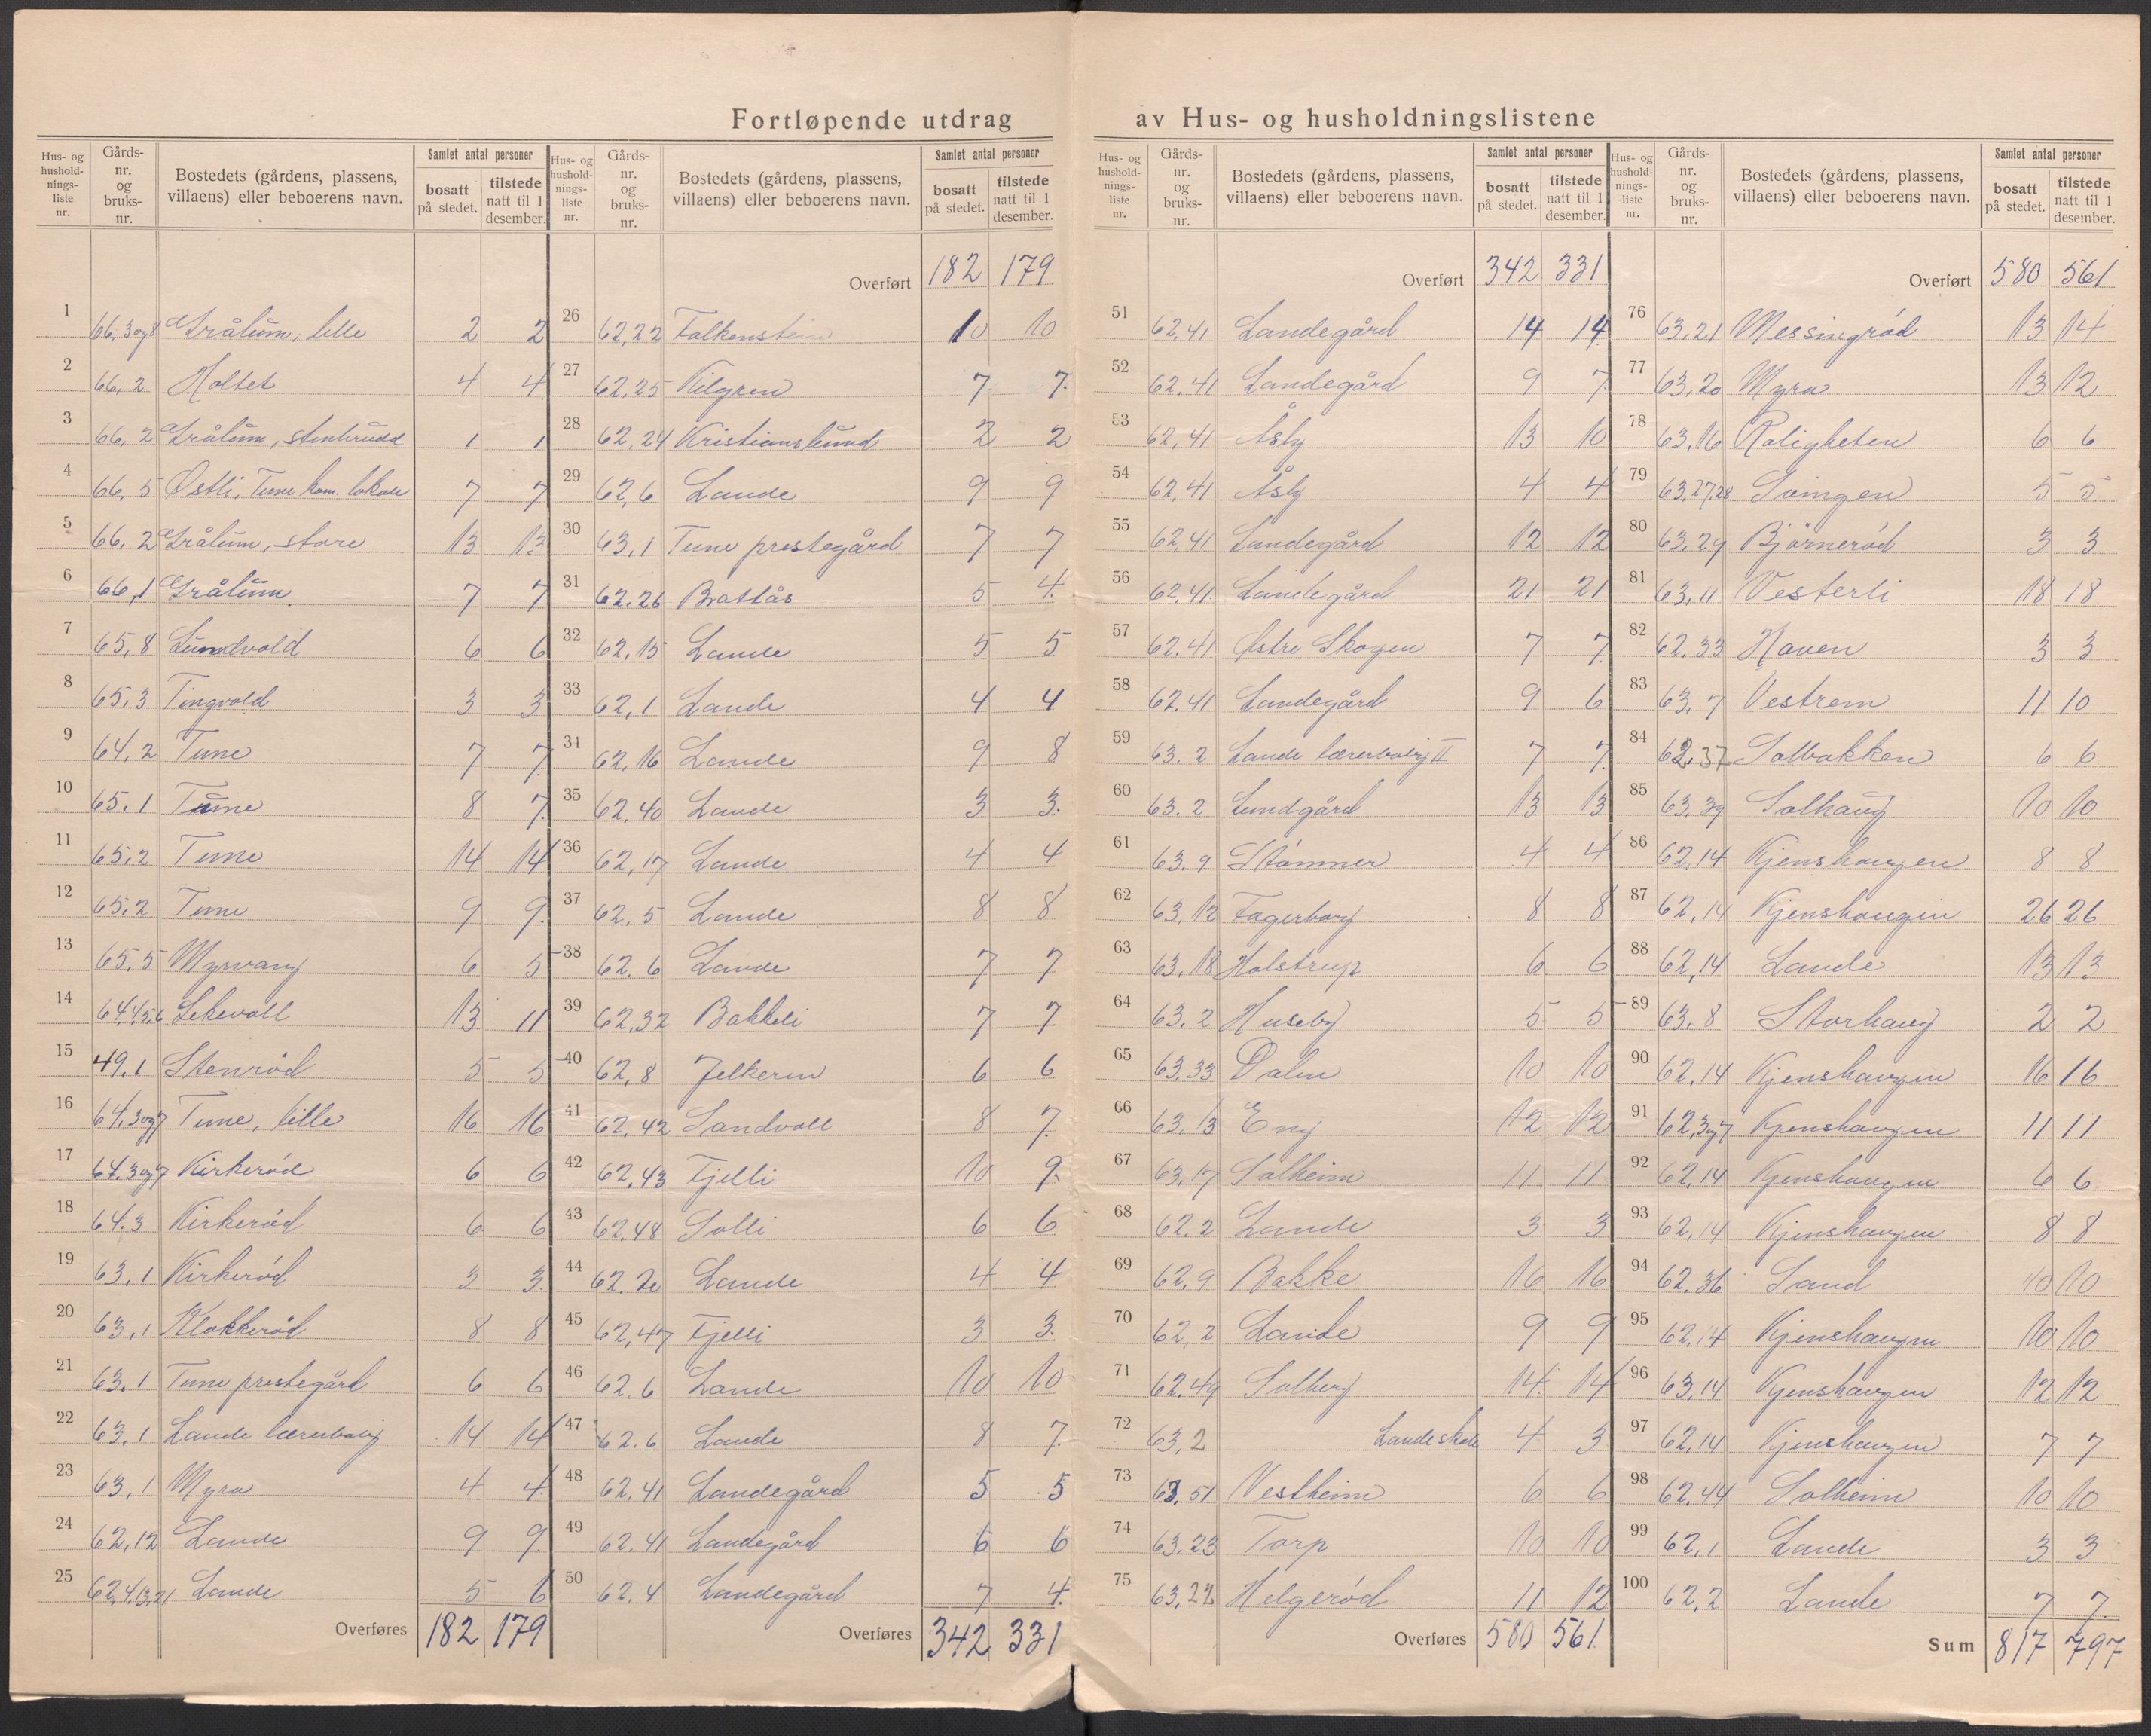 Fortløpende utdrag av Hus- og husholdningslistene
Hus- og husholdningsliste nr. | Gårdsnr. og bruksnr. | Bostedets (gårdens, plassens, villaens) eller beboerens navn. | Samlet antal personer bosatt på stedet. | tilstede natt til 1 desember.
1 66,3og8 Grålum, lille 2 2
2 66,2 Holtet 4 4
3 66,2 Grålum, stenbrudd 1 1
4 66,5 Østli, Tune kom. lokale 7 7
5 66,2 Grålum, store 13 13
6 66,1 Grålum 7 7
7 65,8 Lundvold 6 6
8 65,3 Tingvold 3 3
9 64,2 Tune 7 7
10 65.1 Tune 8 7
11 65,2 Tune 14 14
12 65,2 Tune 9 9
13 65,5 Myrvang 6 5
14 64,4,5,6 Lekevoll 13 11
15 49.1 Stenrød 5 5
16 64,3og7 Tune, lille 16 16
17 64.3og7 Kirkerød 6 6
18 64.3 Kirkerød 6 6
19 63,1 Kirkerød 3 3
20 63,1 Klokkerød 8 8
21 63.1 Tune prestegård 6 6
22 63.1 Lande lærerbolig 14 14
23 63,1 Myra 4 4
24 62,12 Lande 9 9
25 62,4,13,21 Lande 5 6
Overføres 182 179
Hus- og husholdningsliste nr. | Gårdsnr. og bruksnr. | Bostedets (gårdens, plassens, villaens) eller beboerens navn. | Samlet antal personer bosatt på stedet. | tilstede natt til 1 desember.
Overført 182 179
26 62,22 Falkenstein 10 10
27 62,25 Kilgren 7 7
28 62,24 Kristianslund 2 2
29 62,6 Lande 9 9
30 63,1 Tune prestegård 7 7
31 62.26 Brattås 5 4
32 62,15 Lande 5 5
33 62,1 Lande 4 4
34 62,16 Lande 9 8
35 62,40 Lande 3 3
36 62,17 Lande 4 4
37 62,5 Lande 8 8
38 62.6 Lande 7 7
39 62,32 Bakkeli 7 7
40 62,8 Jelkerem 6 6
41 62,42 Sandvoll 8 7
42 62,43 Fjelli 10 9
43 62.48 Solli 6 6
44 62.20 Lande 4 4
45 62,47 Fjelli 3 3
46 62.6 Lande 10 10
47 62.6 Lande 8 7
48 62,41 Landegård 5 5
49 62.41 Landegård 6 6
50 62.4 Landegård 7 4
Overføres 342 331
Hus- og husholdningsliste nr. | Gårdsnr. og bruksnr. | Bostedets (gårdens, plassens, villaens) eller beboerens navn. | Samlet antal personer bosatt på stedet. | tilstede natt til 1 desember.
Overført 342 331
51 62,41 Landegård 14 14
52 62,41 Landegård 9 7
53 62,41 Åsly 13 10
54 62,41 Åsly 4 4
55 62,41 Landegård 12 12
56 62,41 Landegård 21 21
57 62.41 Østre Skogen 7 7
58 62.41 Landegård 9 6
59 63.2 Lande lærerbolig II 7 7
60 63.2 Lundgård 13 13
61 63.9 Strømner 4 4
62 63,12 Fagerborg 8 8
63 63,18 Holstrup 6 6
64 63.2 Huseby 5 5
65 63.33 Dalen 10 10
66 63.13 Eng 12 12
67 63,17 Solheim 11 11
68 62,2 Lande 3 3
69 62,9 Bakke 16 16
70 62,2 Lande 9 9
71 62.49 Solberg 14 14
72 63,2 Lande skole 4 3
73 63,51 Vestheim 6 6
74 63.23 Torp 10 10
75 63,22 Helgerød 11 12
Overføres 580 561
Hus- og husholdningsliste nr. | Gårdsnr. og bruksnr. | Bostedets (gårdens, plassens, villaens) eller beboerens navn. | Samlet antal personer bosatt på stedet. | tilstede natt til 1 desember.
Overført 580 561
76 63,21 Messingrød 13 14
77 63,20 Myra 13 12
78 63,16 Roligheten 6 6
79 63,27,28 Svingen 5 5
80 63.29 Bjørnerød 3 3
81 63,11 Vesterli 18 18
82 62.33 Haven 3 3
83 63,7 Vestrem 11 10
84 62,37 Solbakken 6 6
85 63.39 Solhaug 10 10
86 62,14 Kjenshaugen 8 8
87 62,14 Kjenshaugen 26 26
88 62,14 Lande 13 13
89 63,8 Storhaug 2 2
90 62,14 Kjenshaugen 16 16
91 62,3og7 Kjenshaugen 11 11
92 62,14 Kjenshaugen 6 6
93 62,14 Kjenshaugen 8 8
94 62.36 Sand 10 10
95 62,14 Kjenshaugen 10 10
96 63,14 Kjenshaugen 12 12
97 62,14 Kjenshaugen 7 7
98 62.44 Solheim 10 10
99 62,1 Lande 3 3
100 62,2 Lande 7 7
Sum 817 797